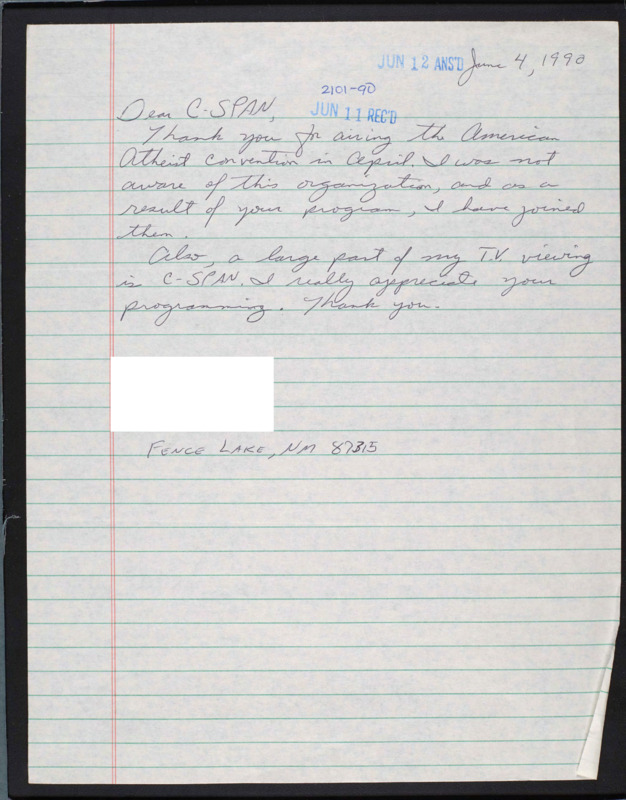 JUN 12 ANS'D June 4, 1990
2101-90
Dear C-SPAN, JUN 11 REC'D
Thank you for airing the American
Atheist Convention in April. I was not
aware of this organization, and as a
result of your program, I have joined
them.
Also, a large part of my T.V. viewing
is C-SPAN. I really appreciate your
programming. Thank you.
FENCE LAKE, NM 87315